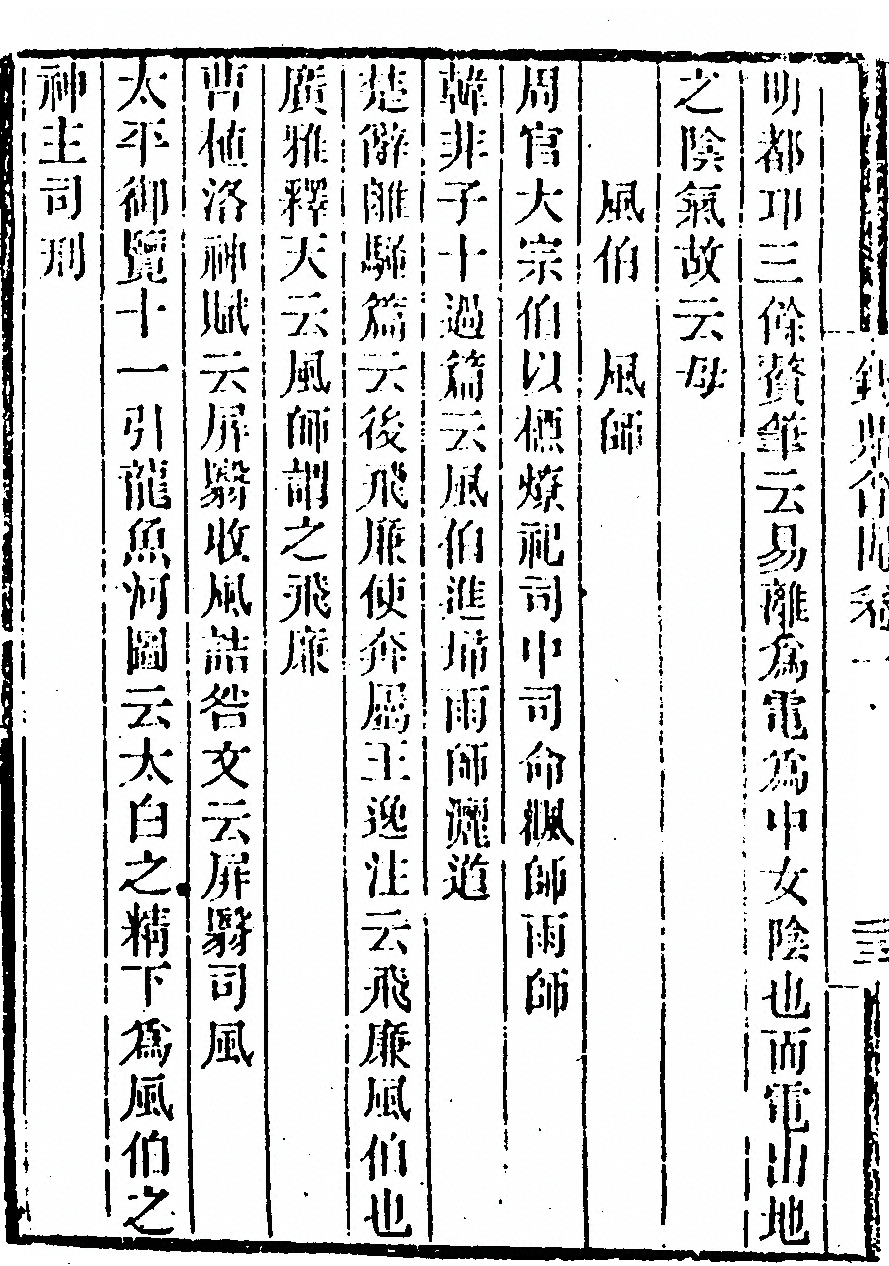 明都卭三餘贅筆云易離爲電爲中女陰也而電出地
之陰氣故云母
風伯　風師
周官大宗伯以槱燎祀司中司命飌師雨師
韓非子十過篇云風伯進埽雨師灑道
楚辭離騷篇云後飛廉使奔屬王逸注云飛廉風伯也
廣雅釋天云風師謂之飛廉
曹植洛神賦云屏翳收風詰咎文云屏翳司風
太平御覽十一引龍魚河圖云太白之精下爲風伯之
神主司刑